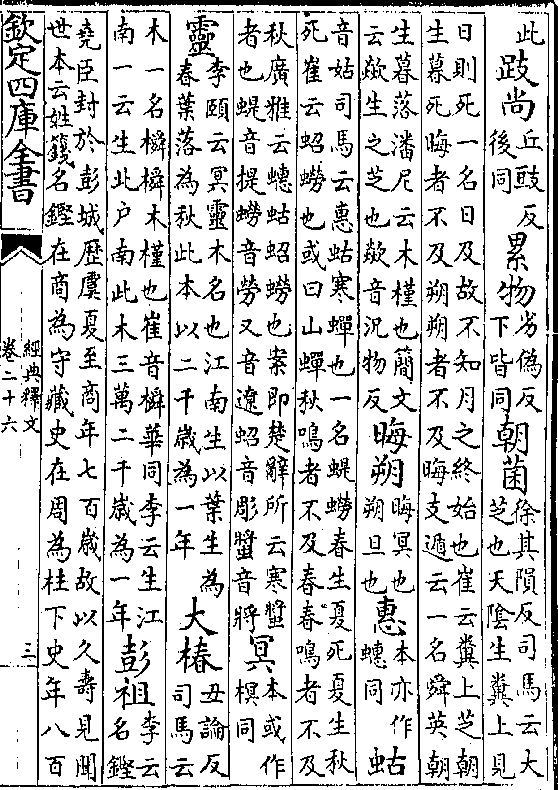 此跂尚丘豉反後同累物劣偽反下皆同朝菌徐其隕反司馬云大芝也天陰生糞上見
日則死一名日及故不知月之終始也崔云糞上芝朝生暮死晦者不及朔朔者不及晦支遁云一名舜英朝
生暮落潘尼云木槿也簡文云歘生之芝也歘音況物反晦朔晦冥也朔旦也惠本亦作蟪同蛄
音姑司馬云惠蛄寒蟬也一名蝭蟧春生夏死夏生秋死崔云蛁蟧也或曰山蟬秋鳴者不及春春鳴者不及
秋廣雅云蟪蛄蛁蟧也案即楚辭所云寒螿者也蝭音提蟧音勞又音遼蛁音彫螿音將冥本或作榠同
靈李頤云冥靈木名也江南生以葉生為春葉落為秋此本以二千歲為一年大椿丑論反司馬云
木一名橓橓木槿也崔音橓華同李云生江南一云生北户南此木三萬二千歲為一年彭祖李云名鏗
堯臣封於彭城歷虞夏至商年七百歲故以久壽見聞世本云姓籛名鏗在商為守藏史在周為柱下史年八百
欽定四庫全書
經典釋文
卷二十六
三